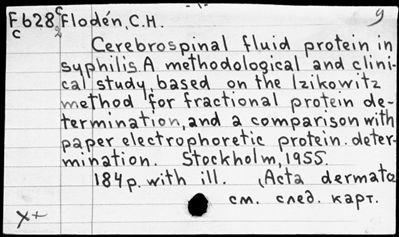 Fb28 Flodén, C.H. 9
c
Cerebrospinal fluid protein in
syphilis. A methodological and clini-
cal study, based on the Izikowitz
method for fractional protein de-
termination, and a comparison with
paper electrophoretic protein deter-
mination. Stockholm, 1955.
184 p. with ill. (Acta dermato
см. след. карт.
x+